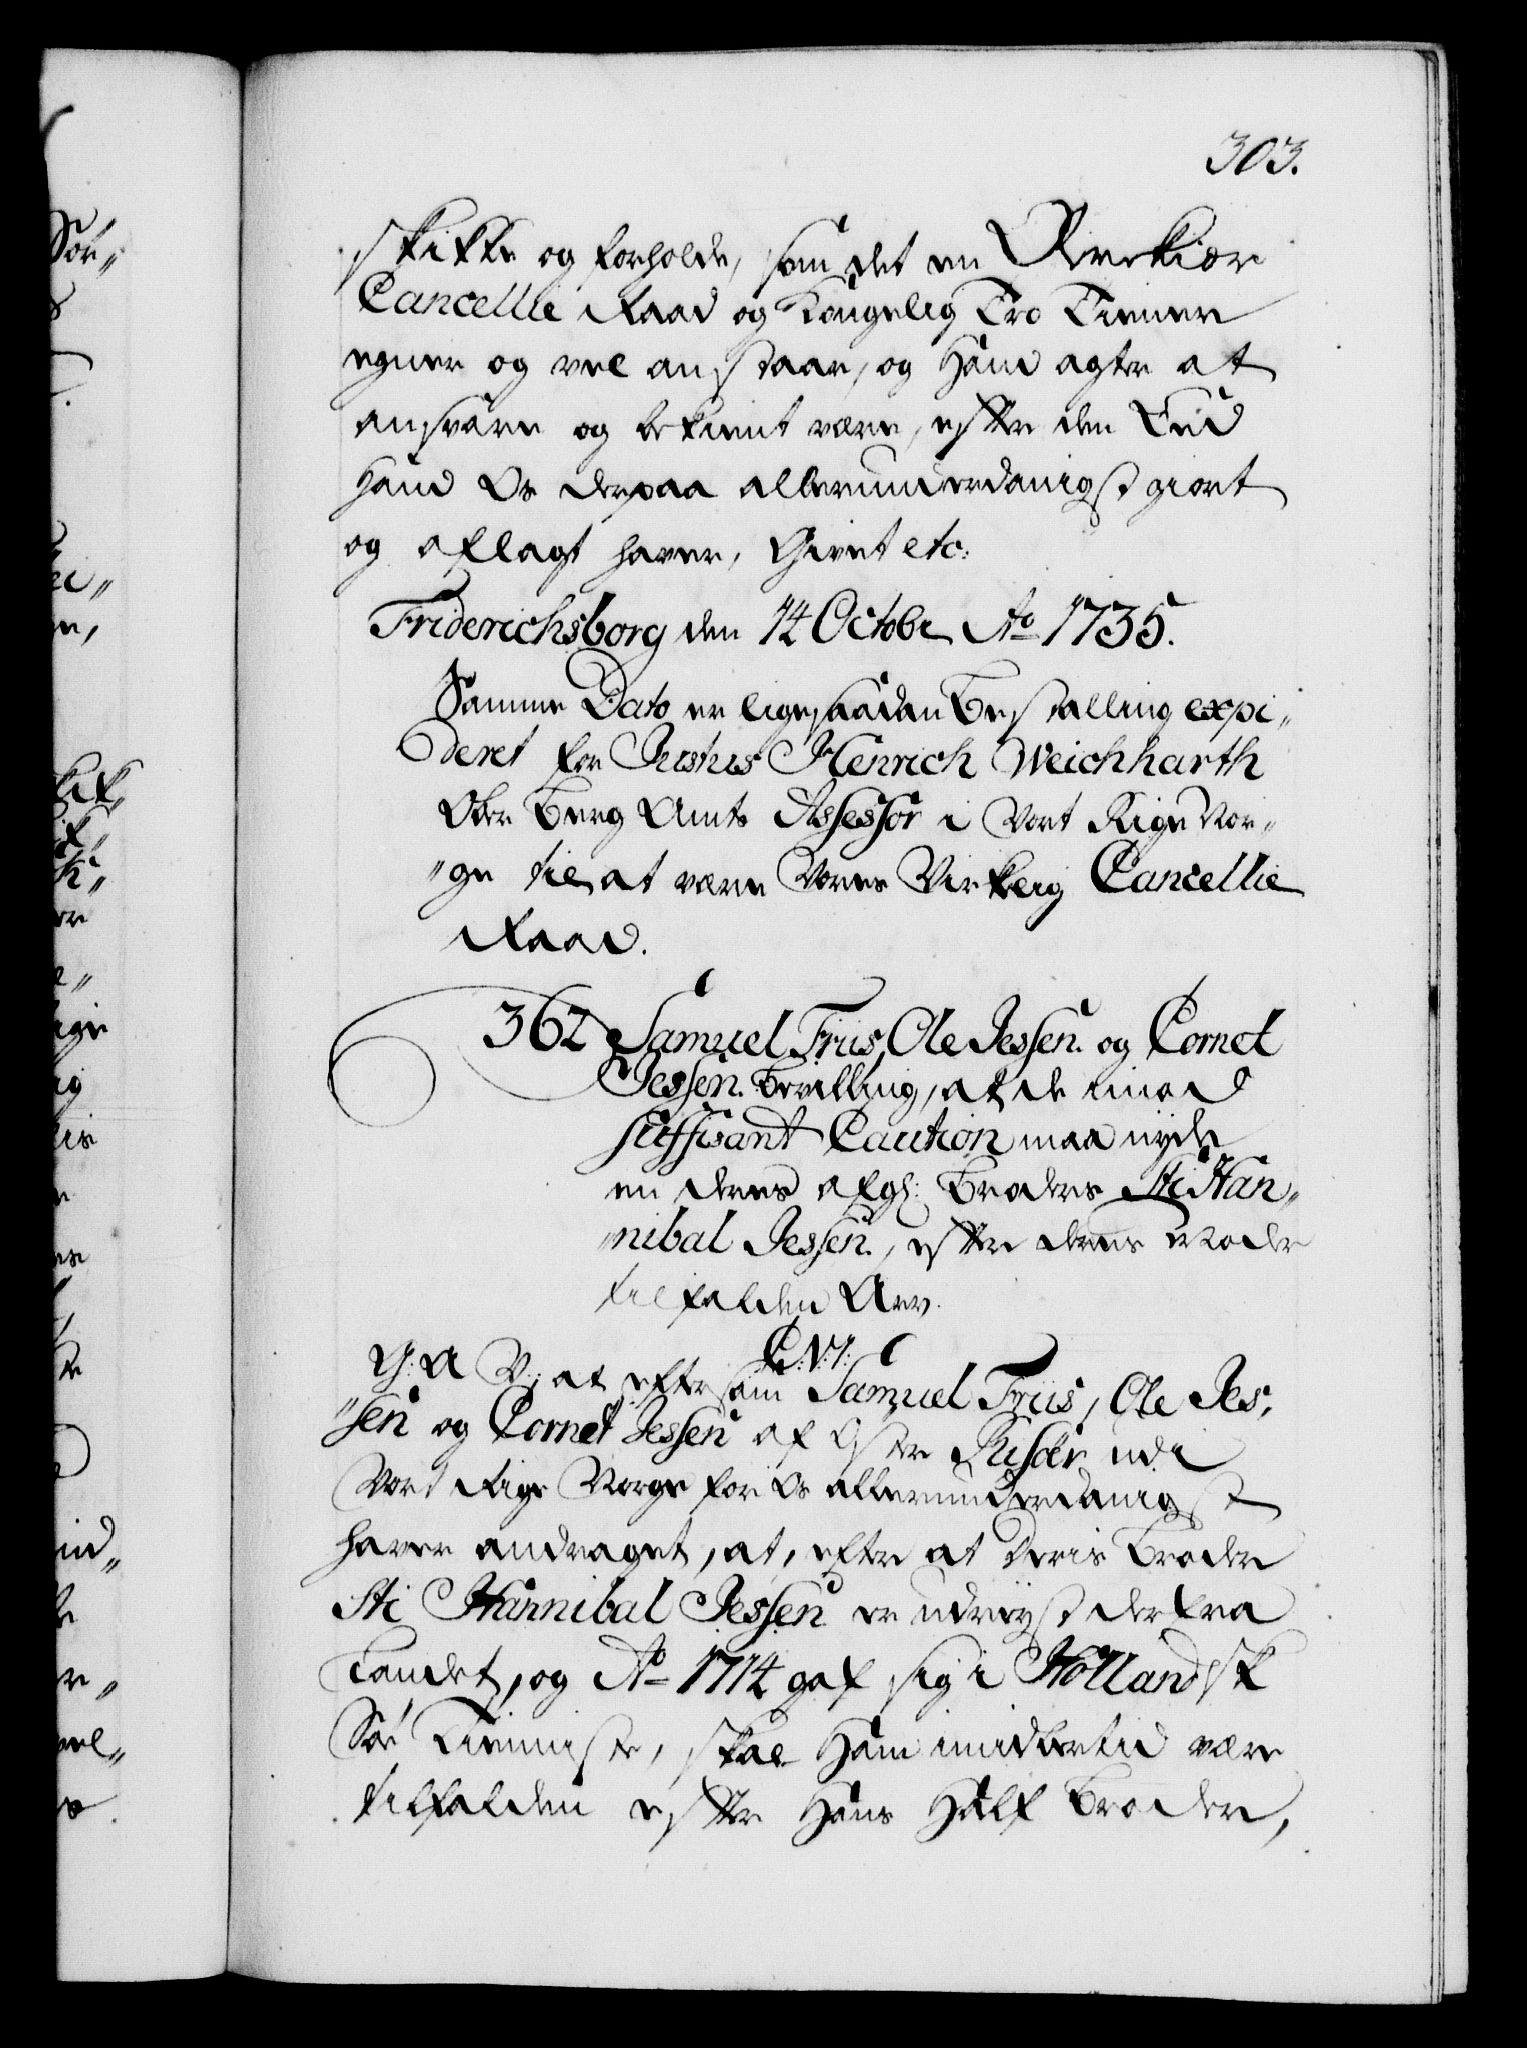 303.
skikke og forholde, som det en Ærekiær
Cancellie Raad og Kongelig Tro Tiener
egner og vel anstaar, og Hand agter at
ansvare og bekient være, effter den Eed
Hand Os derpaa allerunderdanigst giort
og aflagt haver, Givet etc:
Friderichsborg den 14 Octobr Ao 1735.
Samme Dato er ligesaadan Bestalling expi¬
deret for Justus Henrich Weichharth
Ober Berg Amts Assessor i Vort Rige Nor¬
"ge til at være Vores Virkelig Cancellie
Raad.
362 Samuel Friis, Ole Jessen og Cornet
Jessen Bevilling, at de imod
suffisant Caution maa nyde
en deres afg: Broders Sti Han¬
"nibal Jessen, effter deres Moder
tilfalden Arv.
C: V I:
G: A V: at eftersom Samuel Friis, Ole Jes¬
"sen og Cornet Jessen af Øster Riisøer udi
Vort Rige Norge for Os allerunderdanigst
haver andraget, at, efter at Deris Broder
Sti Hannibal Jessen er udreyst der fra
Landet, og Ao 1714 gaf sig i Hollandsk
Søe Tienniste, skal Ham imidlertid være
tilfalden effter Hans Half Broder,